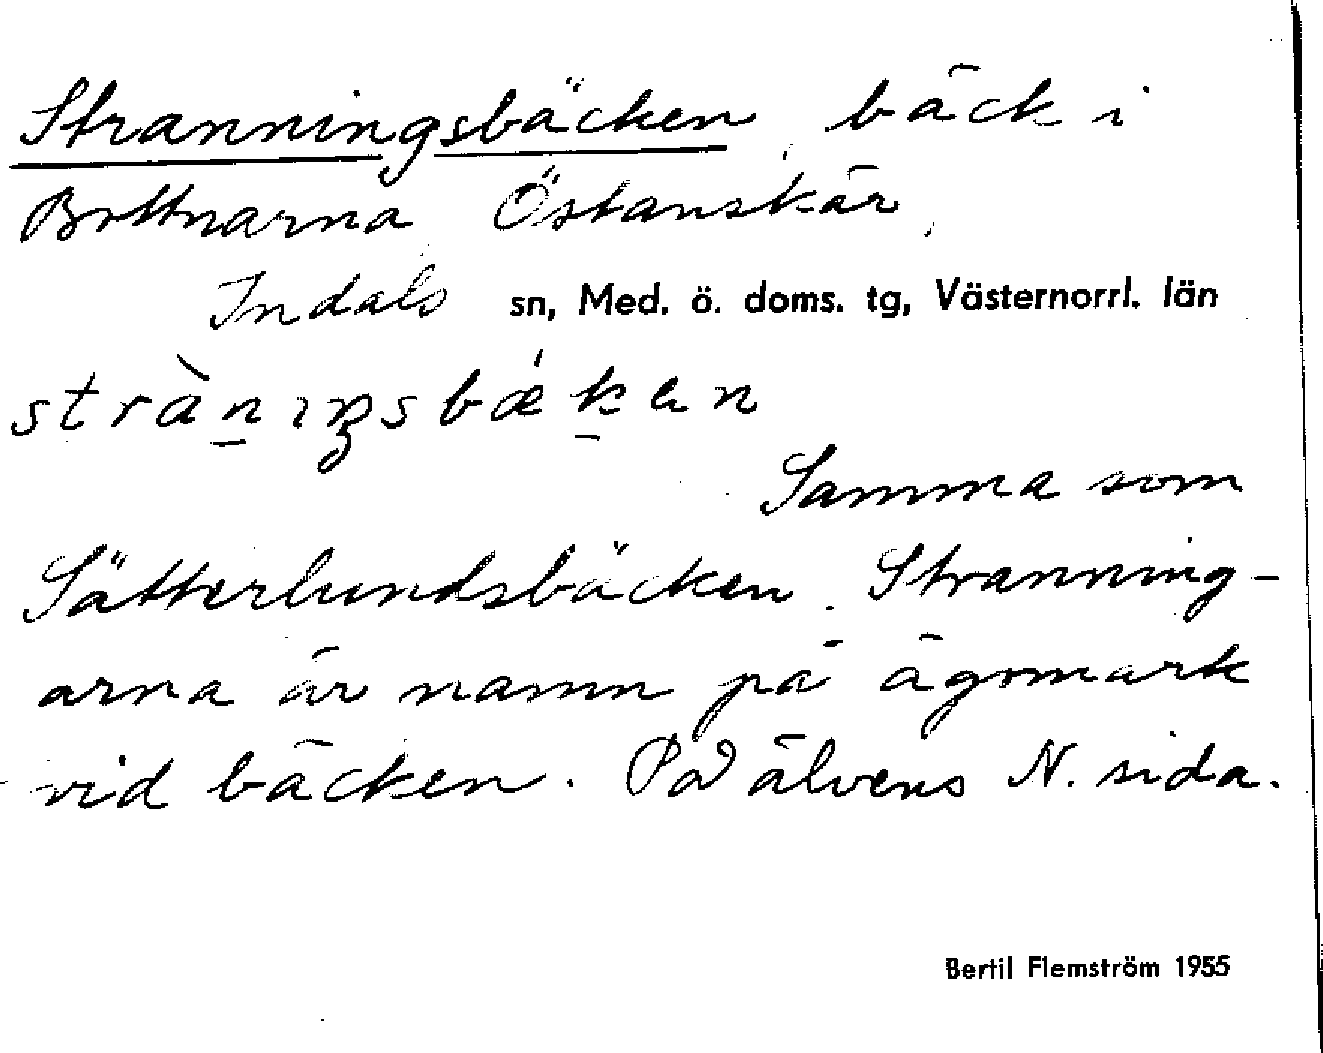 Stranningsbäcken, bäck i
Bottnarna, Östanskär,
Indals sn, Med. ö. doms. tg, Västernorrl. län
Samma som
Sätterlundsbäcken. Stranning-
arna är namn på ägomark
vid bäcken. På älvens N. sida.
Bertil Flemström 1955